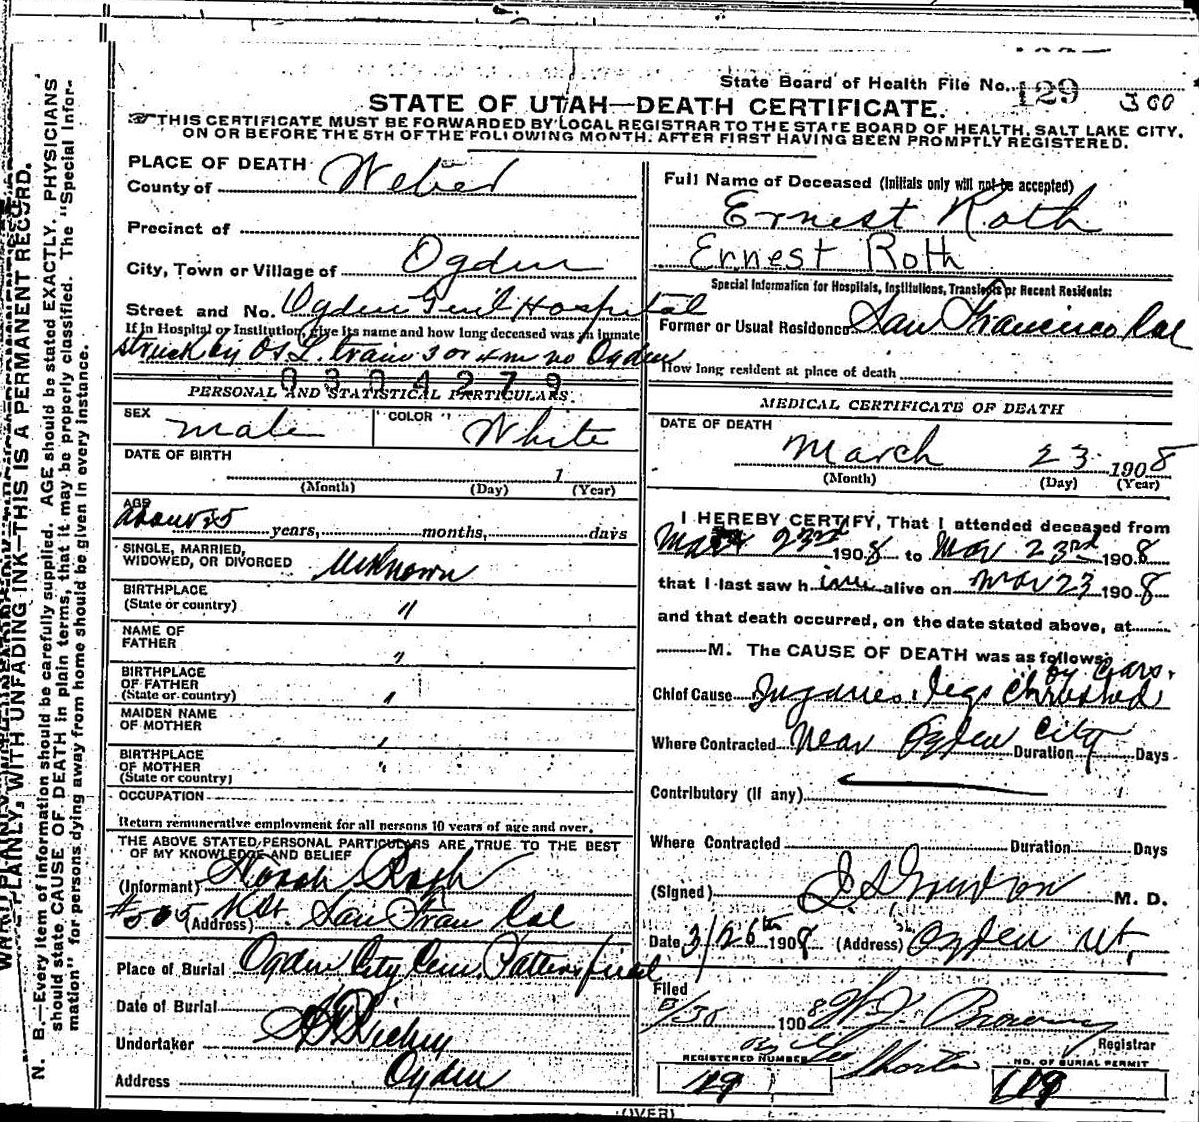 State Board of Health File No. 129 300
STATE OF UTAH—DEATH CERTIFICATE.
THIS CERTIFICATE MUST BE FORWARDED BY LOCAL REGISTRAR TO THE STATE BOARD OF HEALTH, SALT LAKE CITY,
ON OR BEFORE THE 5TH OF THE FOLLOWING MONTH, AFTER FIRST HAVING BEEN PROMPTLY REGISTERED.
PLACE OF DEATH
County of Weber
Precinct of
City, Town or Village of Ogden
Street and No. Ogden Gen'l Hospital
If in Hospital or Institution, give its name and how long deceased was an inmate
struck by O.S.L. train 3 or 4 m no Ogden
0304279
PERSONAL AND STATISTICAL PARTICULARS.
SEX male
COLOR White
DATE OF BIRTH
1
(Month) (Day) (Year)
AGE
about 35 years, months, days
SINGLE, MARRIED,
WIDOWED, OR DIVORCED Unknown
BIRTHPLACE
(State or country) "
NAME OF
FATHER "
BIRTHPLACE
OF FATHER
(State or country) "
MAIDEN NAME
OF MOTHER "
BIRTHPLACE
OF MOTHER
(State or country) "
OCCUPATION
Return remunerative employment for all persons 10 years of age and over.
THE ABOVE STATED PERSONAL PARTICULARS ARE TRUE TO THE BEST
OF MY KNOWLEDGE AND BELIEF
(Informant)
#505 K St. (Address) San Fran Cal
Place of Burial Ogden City Cem.
Date of Burial
Undertaker
Address Ogden
Full Name of Deceased (Initials only will not be accepted)
Ernest Roth
Ernest Roth
Special Information for Hospitals, Institutions, Transients or Recent Residents:
Former or Usual Residence San Francisco Cal
How long resident at place of death
MEDICAL CERTIFICATE OF DEATH
DATE OF DEATH
March 23 1908
(Month) (Day) (Year)
I HEREBY CERTIFY, That I attended deceased from
Mar 23rd 1908 to Mar 23rd 1908
that I last saw him alive on Mar 23 1908
and that death occurred, on the date stated above, at
M. The CAUSE OF DEATH was as follows:
by cars.
Chief Cause Injuries. legs chrushed
Where Contracted Near Ogden City Duration Days
Contributory (if any)
Where Contracted Duration Days
(Signed) M. D.
Date 3/26th 1908 (Address) Ogden Ut,
Filed
3/30 1908 Registrar
REGISTERED NUMBER
119
NO. OF BURIAL PERMIT
119
(OVER)
PLAINLY, WITH UNFADING INK—THIS IS A PERMANENT RECORD.
N. B.—Every item of information should be carefully supplied. AGE should be stated EXACTLY. PHYSICIANS
should state CAUSE OF DEATH in plain terms, that it may be properly classified. The "Special Infor-
mation" for persons dying away from home should be given in every instance.